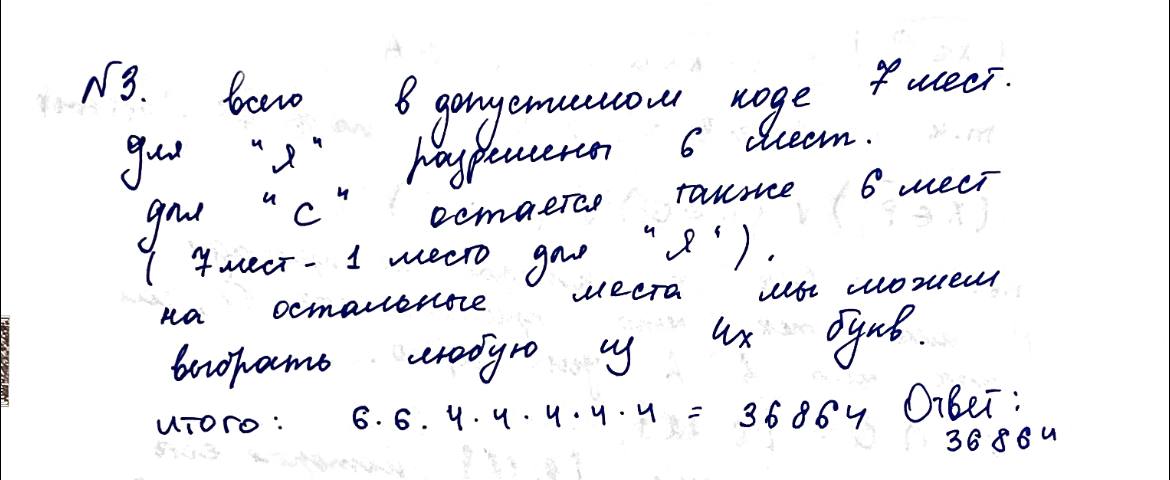 N3. всего в допустимом коде 7 мест.
для "Я" разрешены 6 мест.
для "С" остается также 6 мест
( 7 мест - 1 место для "Я").
на остальные места мы можем
выбрать любую из 4х букв.
итого: 6·6·4·4·4·4·4 = 36864 Ответ:
36864